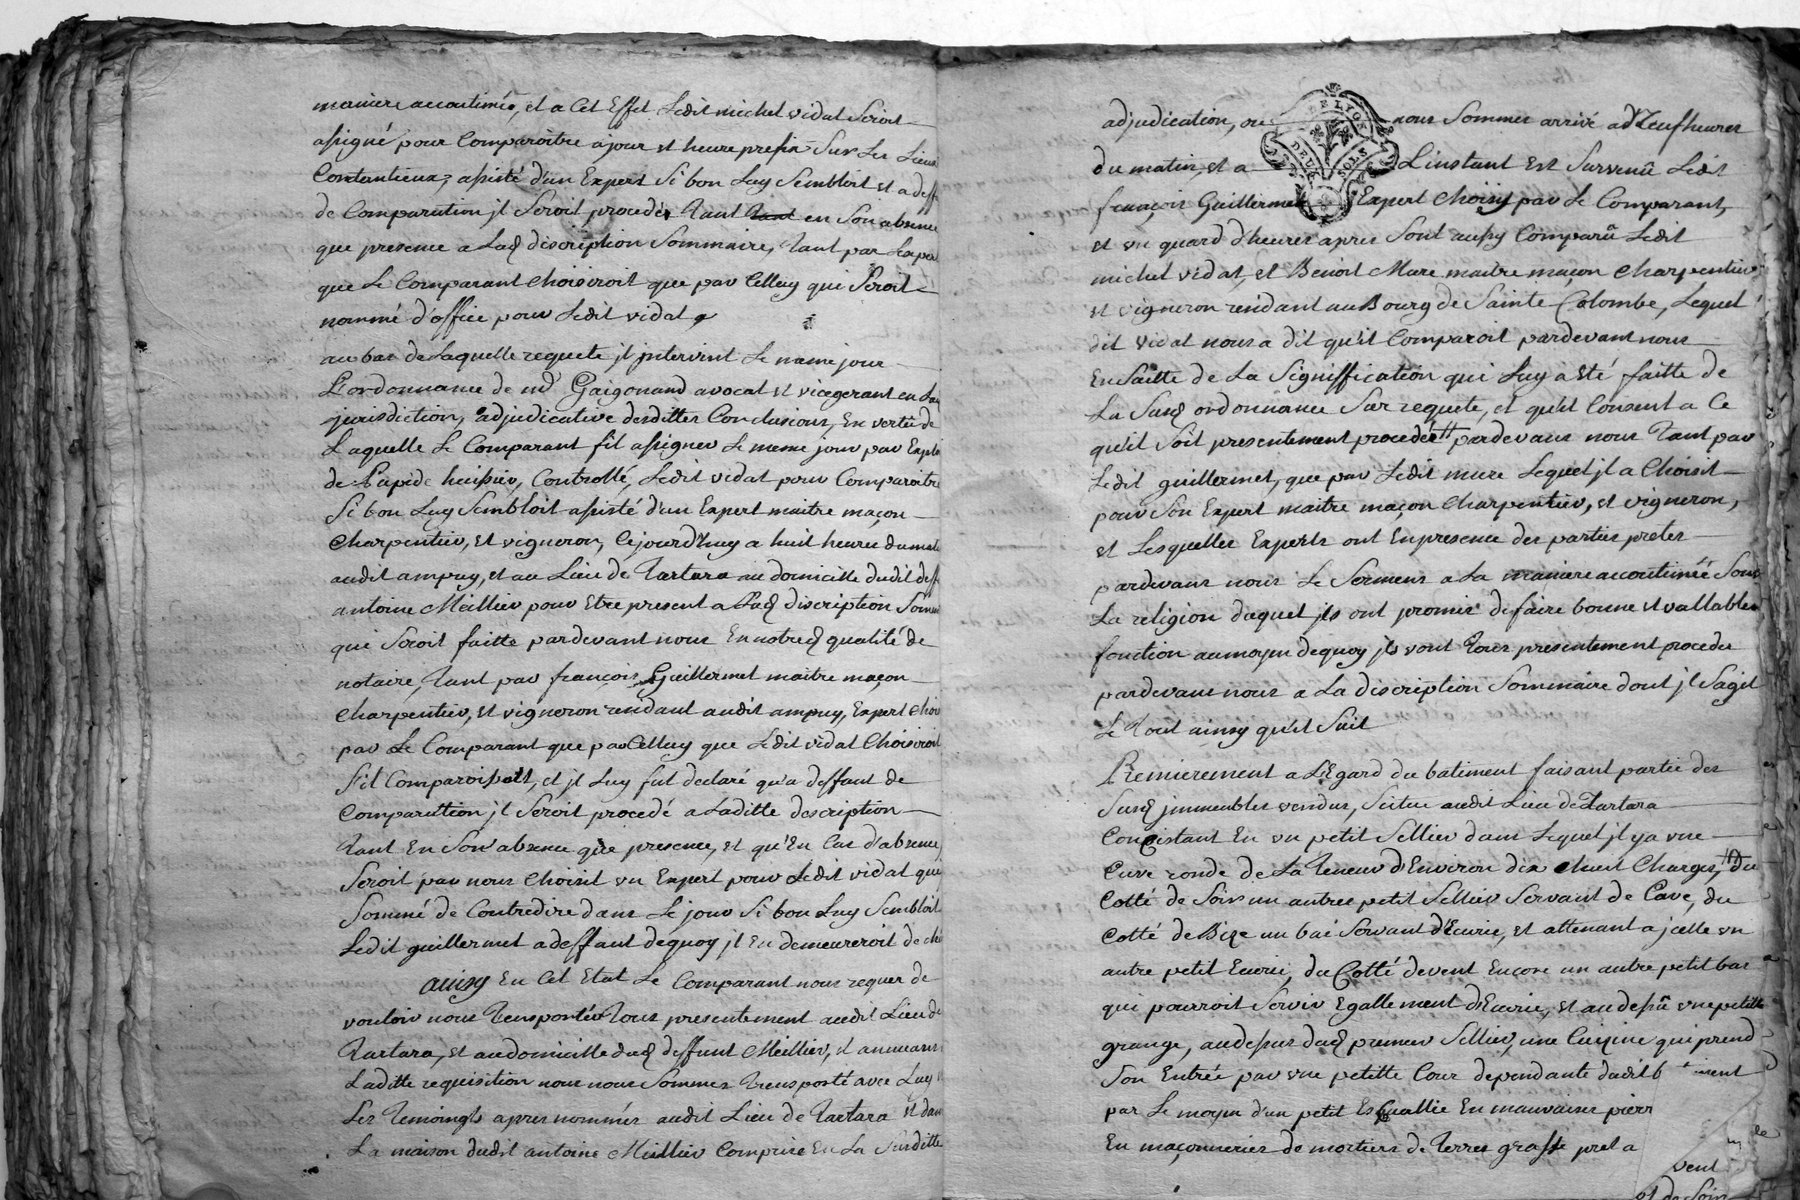 maniere accoutimée, et a Cet Effet Ledit michel vidal Seroit
assigné pour Comparoitre a jour et heure prefix Sur Les Lieux
Contentieux, assisté d'un Expert Si bon Luy Sembloit et a deff
de Comparution jl Seroit procedé tant tant en Son absence
que presence a Lad discription Sommaire, tant par Lexpert
que Le Comparant Choisiroit que par Celluy qui Seroit
nommé d'office pour Ledit vidal
au bas de Laquelle requete jl jntervint Le meme jour
L'ordonnance de mr Gaigonand avocat et vicegerant en
jurisdiction, adjudicative desdittes Conclusions, En vertu de
Laquelle Le Comparant fit assigner Le meme jour par Exploi
de Lapide huissier, Controllé, Ledit vidal pour Comparoitre
Si bon Luy Sembloit assisté d'un Expert maitre maçon
Charpentier, et vigneron, Cejourdhuy a huit heures du mati
audit ampuy, et au Lieu de Tartara au domicille dudit deff
antoine Meillier pour Etre present a Lad discription Somm
qui Seroit faitte pardevant nous En notred qualité de
notaire, tant par françois Guillermet maitre maçon
Charpentier, et vigneron rendant audit ampuy, Expert Choi
par Le Comparant que par Celluy que Ledit vidal Choisiroit
S'il Comparoissoit, et jl Luy fut declaré qu'a deffaut de
Comparution jl Seroit procedé a Laditte description
tant En Son absence que presence, et qu'En Cas d'absence,
Seroit par nous Choisit un Expert pour Ledit vidal qui
Sommé de Contredire dans Le jour Si bon Luy Sembloit
Ledit guillermet a deffaut dequoy jl En demeureroit de
ainsy En Cet Etat Le Comparant nous requer de
vouloir nous Transporter tous presentement audit Lieu de
Tartara, et au domicille dud deffunt Meillier, et
Laditte requisition nous nous Sommes transporté avec Luy
Les temoings apres nommés audit Lieu de Tartara et dans
La maison dudit antoine Meillier Comprise En La Susditte
adjudication, ou nous Sommes arrivé a Neuf heures
du matin, et a L'instant Est Survenû Ledit
françois Guillermet Expert Choisy par Le Comparant,
et un quard d'heures apres Sont aussy Comparû Ledit
michel vidal, et Benoit Mure maitre maçon Charpentier
et vigneron rendant au Bourg de Sainte Colombe, Lequel
dit vidal nous a dit qu'il Comparoit pardevant nous
En Suitte de La Signiffication qui Luy a Eté faitte de
La Susd ordonnance Sur requete, et qu'il Consent a Ce
qu'il Soit presentement procedé pardevans nous tant par
Ledit guillermet, que par Ledit mure Lequel jl a Choisit
pour Son Expert maitre maçon Charpentier, et vigneron,
et Lesquelles Experts ont En presence des parties pretes
pardevans nous Le Serment a La maniere accoutimée Sous
La religion duquel jls ont promis de faire bonne et vallables
fonction au moyen dequoy jls vont tous presentement proceder
pardevans nous a La discription Sommaire dont jl Sagit
Le tout ainsy qu'il Suit
Premierement a L'Egard du batiment faisant partie des
Susd jmmeubles vendus, Scitue audit Lieu de Tartara
Concistant En un petit Sellier dans Lequel jl y a une
Cuve ronde de La teneur d'Environ dix huit Charges, Du
Cotté de Soir un autres petit Sellier Servant de Cave, du
Cotté de Bize un bai Servant d'Ecurie, et attenant a jcelle un
autre petit Ecurie, du Cotté devent Encore un autre petit bas
qui pourroit Servir Egallement d'Ecurie, et au dessû une petitte
grange, au dessus dud premier Sellier, une Cuizine qui prend
Son Entrée par une petitte Cour dependante dudit b iment
par Le moyen d'un petit Escallie En mauvaises pierr
En maçonneries de mortiers de terres grasse pret a
vent
et de Soir
DEUX SOLS